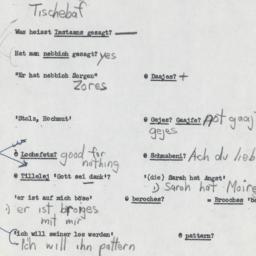 Tischebaf
Was heisst Instanns gesagt?
Hat man nebbich gesagt? yes
"Er hat nebbich Sorgen" @ Daajes? +
Zores
'Stolz, Hochmut' @ Gejes? Gaajfe? not gaaj
gejes
@ Lochefets? good for nothing @ Schmuheni? Ach du lieb
@ Tillelei 'Gott sei dank'? '(die) Sarah hat Angst'
i) Sarah hat Moire
'er ist auf mich böse' @ beroches? = Brooches 'be
i) er ist broges mit mir
'ich will seiner los werden' @ pattern?
Ich will ihn pattern